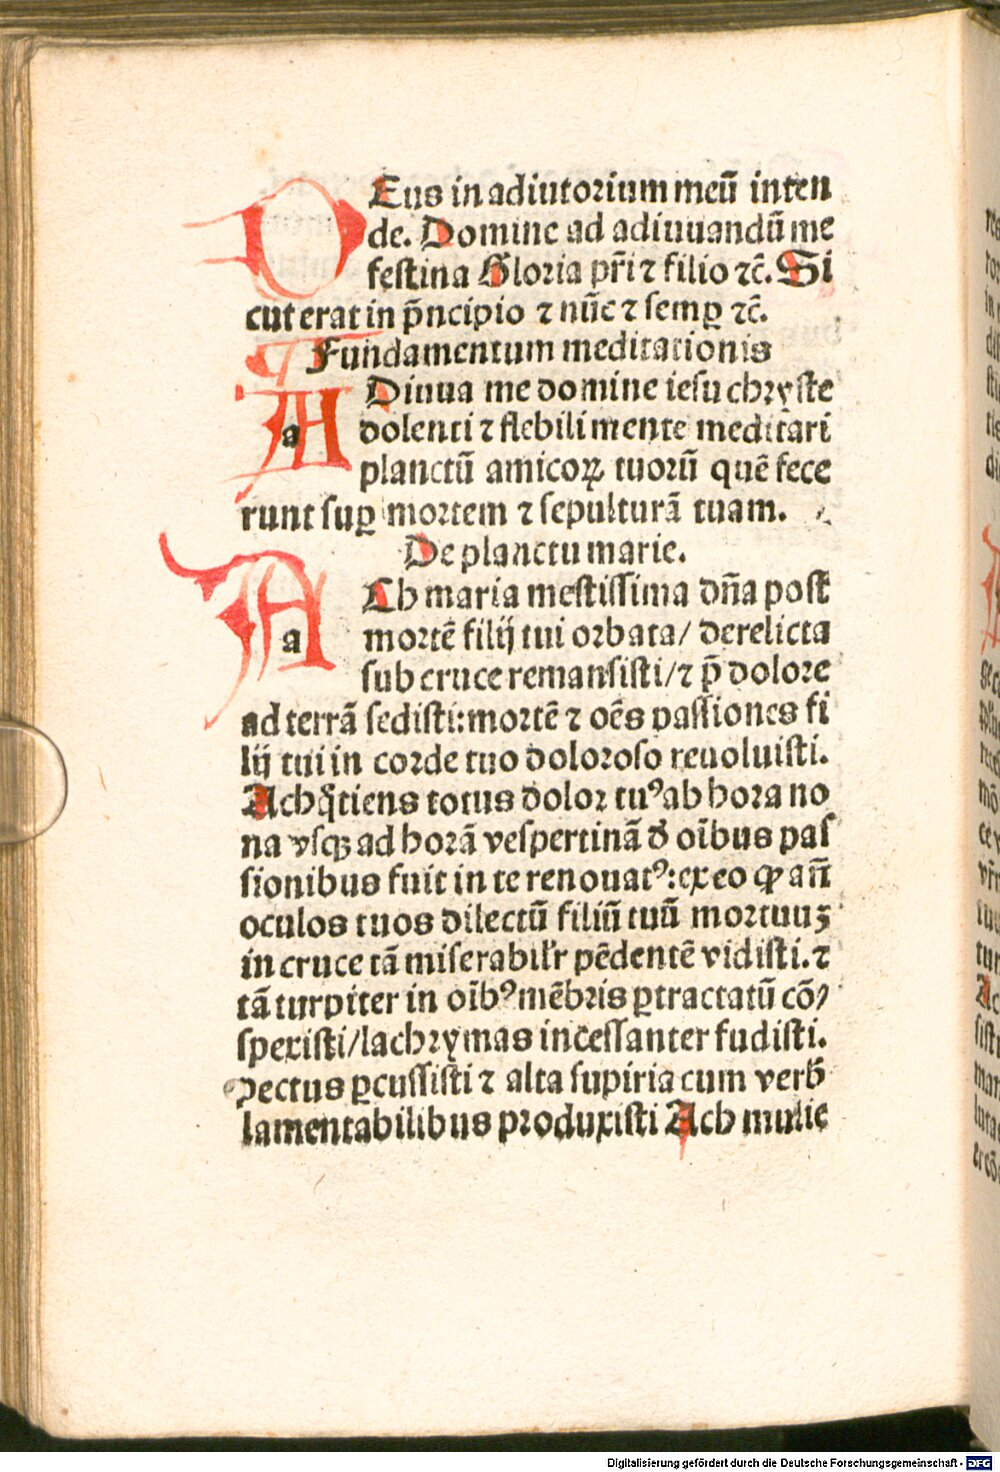 DEus in adiutorium meū inten
de. Domine ad adiuuandū me
festina Gloria pr̄i ⁊ filio ⁊c̄. Si
cut erat in p̄ncipio ⁊ nūc ⁊ semꝑ ⁊c̄.
Fundamentum meditationis
ADiuua me domine iesu chryste
dolenti ⁊ flebili mente meditari
planctū amicoꝝ tuorū quē fece
runt suꝑ mortem ⁊ sepulturā tuam.
De planctu marie.
ACh maria mestissima dn̄a post
mortē filij tui orbata/ derelicta
sub cruce remansisti/⁊ p̄ dolore
ad terrā sedisti: mortē ⁊ oēs passiones fi
lij tui in corde tuo doloroso reuoluisti.
Ach q̄tiens totus dolor tuꝰ ab hora no
na vsqꝫ ad horā vespertinā đ oībus pas
sionibus fuit in te renouatꝰ: ex eo ꝙ an̄
oculos tuos dilectū filiū tuū mortuuꝫ
in cruce tā miserabil'r pēdentē vidisti. ⁊
tā turpiter in oībꝰ mēbris ꝑtractatū cō/
spexisti/lachrymas incessanter fudisti.
pectus ꝑcussisti ⁊ alta supiria cum verb̄
lamentabilibus produxisti Ach mulie
Digitalisierung gefördert durch die Deutsche Forschungsgemeinschaft - DFG